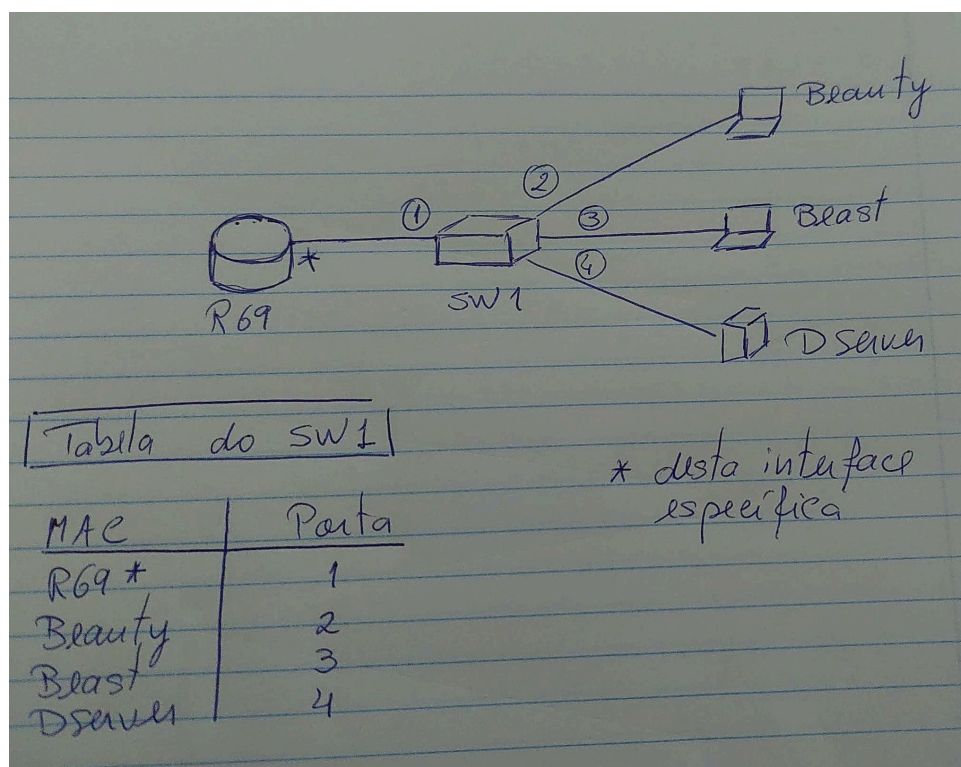 Beauty
②
① ③ Beast
*
④
R69
SW1
DServer
Tabela do SW1
* desta interface
específica
MAC Porta
R69 * 1
Beauty 2
Beast 3
DServer 4